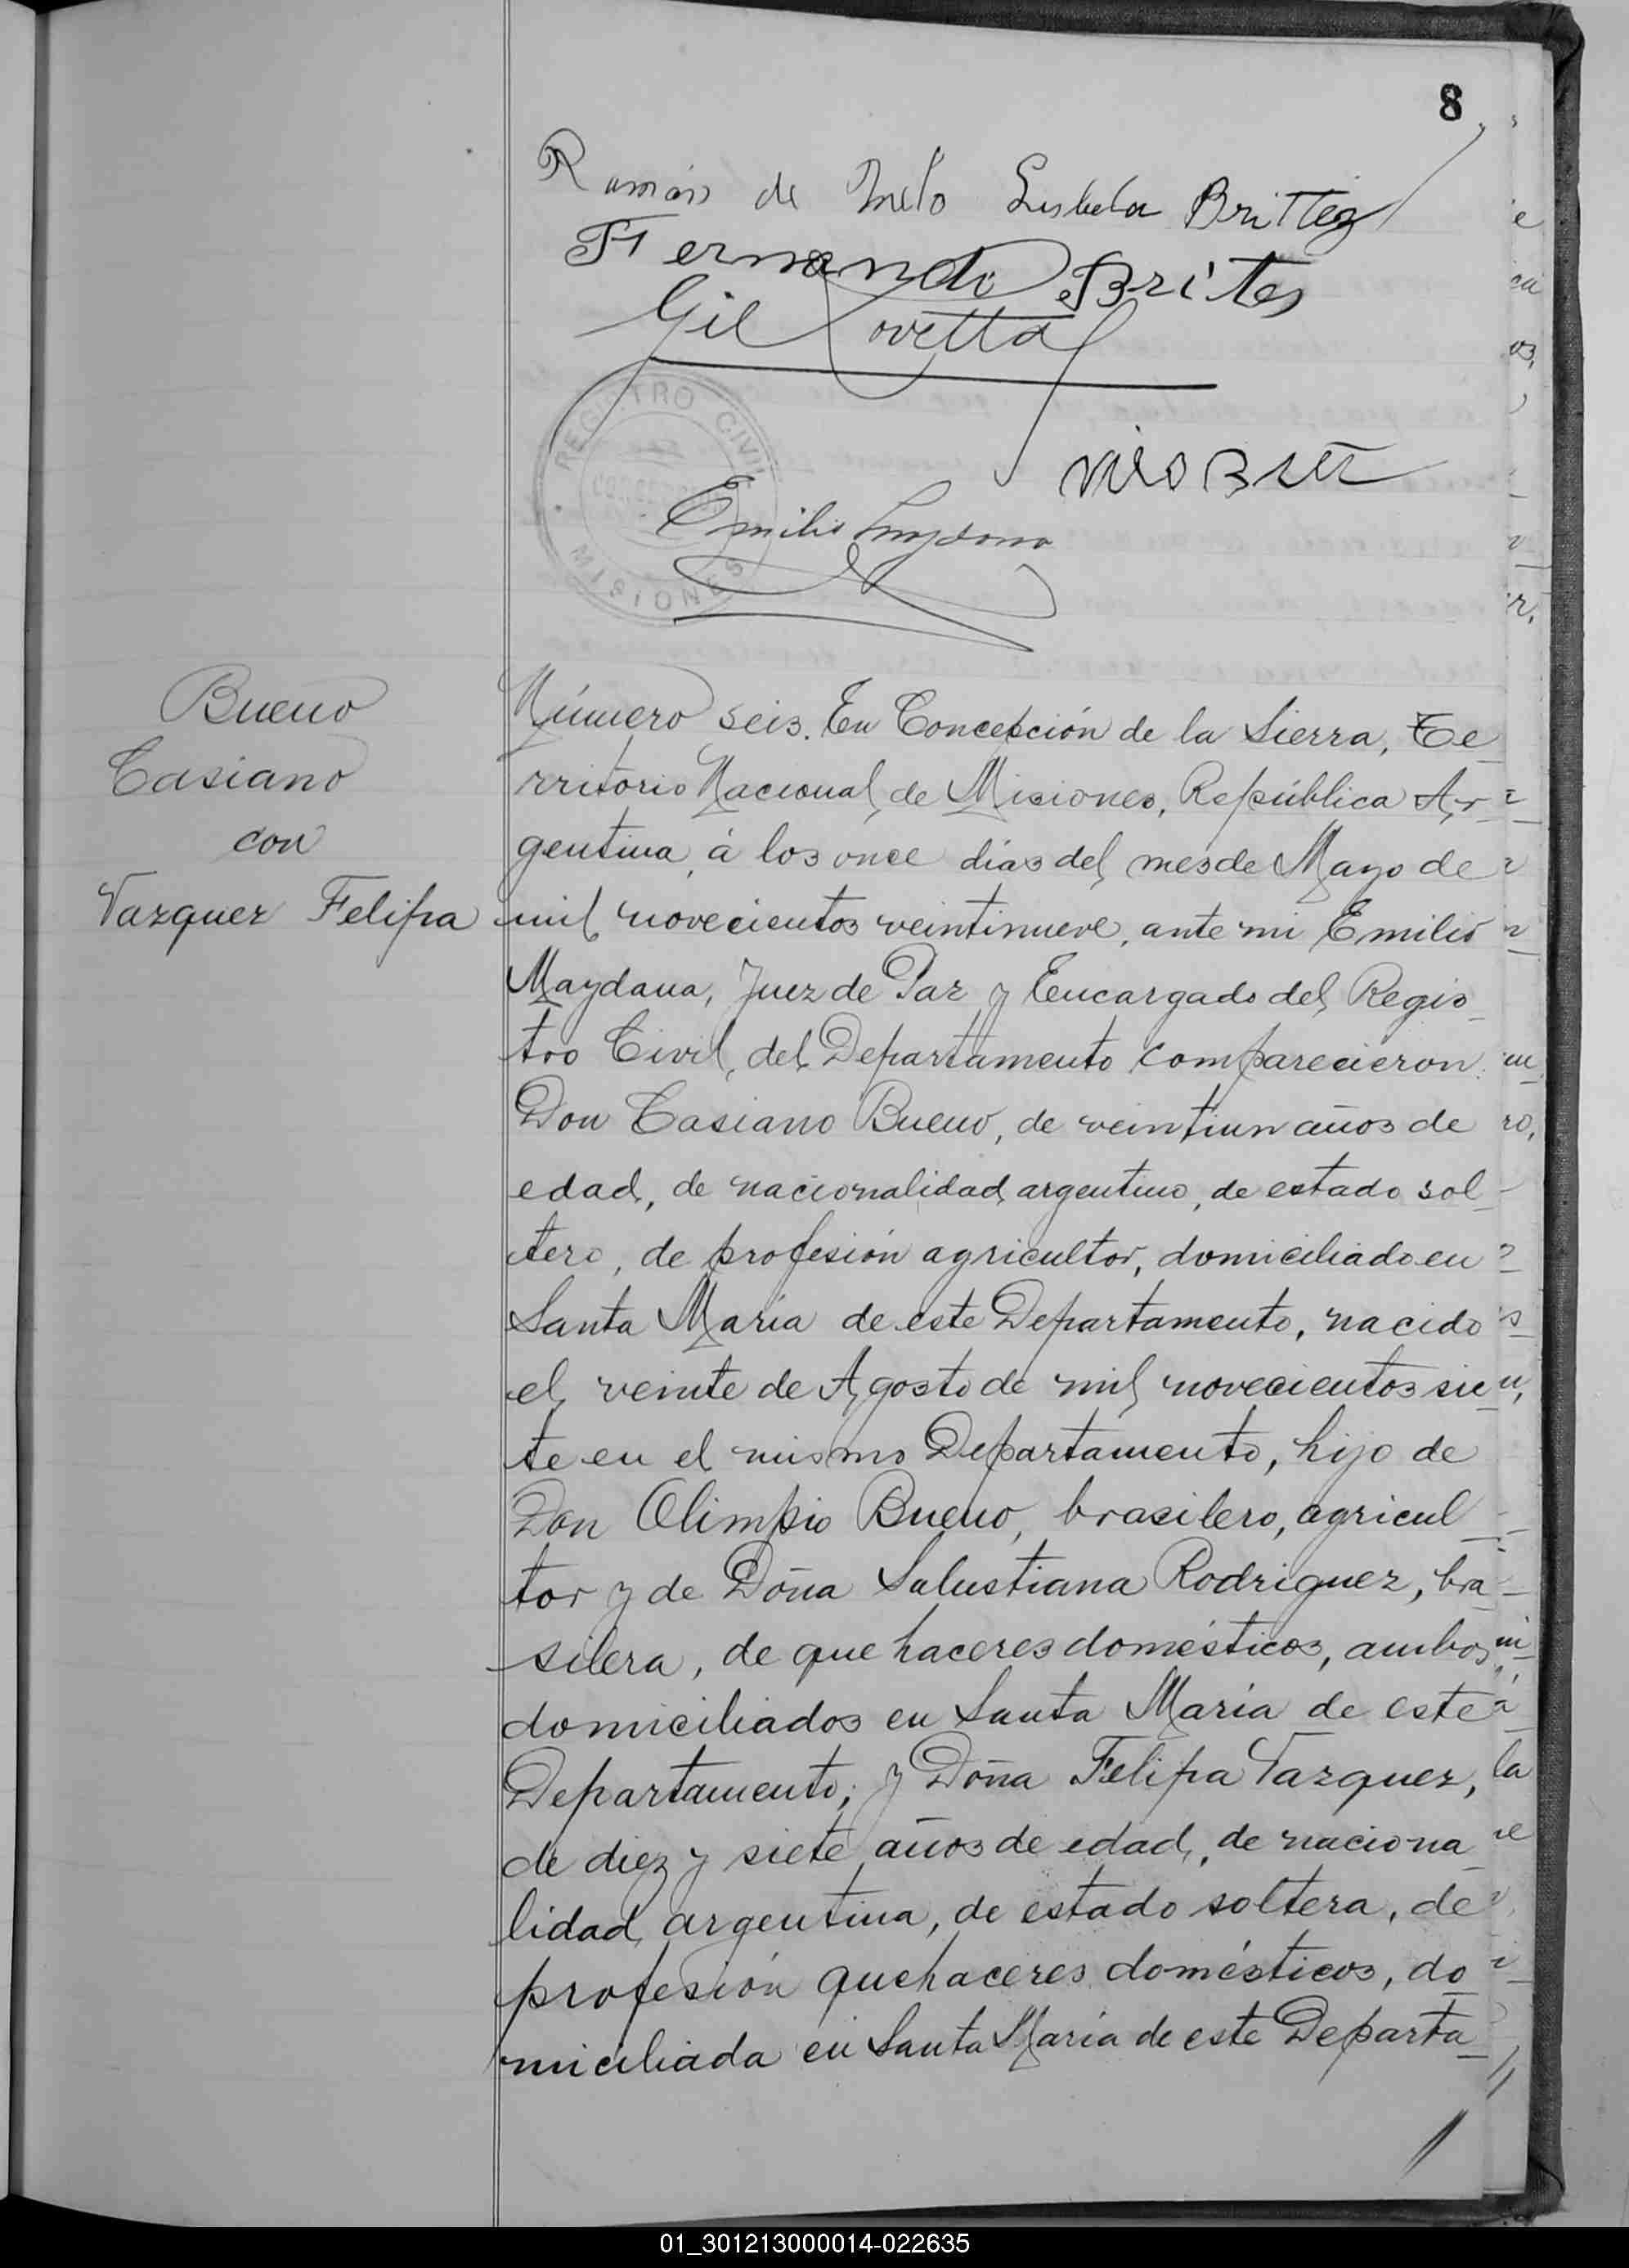 8
Ramón de Melo Brittez
Fernando Brites
Gil Lovetta
REGISTRO CIVIL
MISIONES
Emilio
Bueno
Casiano
con
Vazquez Felipa
Número seis. En Concepción de la Sierra, Te
rritorio Nacional de Misiones, República Ar-
gentina, á los once días del mes de Mayo de
mil novecientos veintinueve, ante mi Emilio
Maydana, Juez de Paz y Encargado del Regis
tro Civil, del Departamento comparecieron
Don Casiano Bueno, de veintiun años de
edad, de nacionalidad argentino, de estado sol
tero, de profesión agricultor, domiciliado en
Santa María de este Departamento, nacido
el veinte de Agosto de mil novecientos sie
te en el mismo Departamento, hijo de
Don Olimpio Bueno, brasilero, agricul
tor y de Doña Salustiana Rodriguez, bra
silera, de que haceres domésticos, ambos
domiciliados en Santa María de este
Departamento; y Doña Felipa Vazquez,
de diez y siete años de edad, de naciona
lidad argentina, de estado soltera, de
profesión quehaceres domésticos, do
miciliada en Santa María de este Departa
01_301213000014-022635